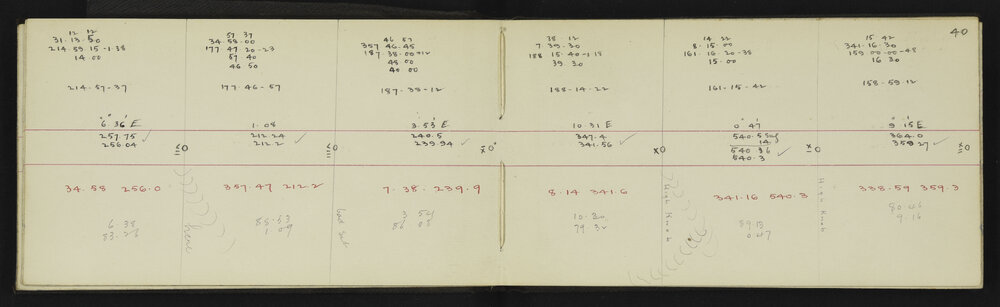 40
12 12
31.13.50
214.59.15-1.38
14 00
214-57-37
6.36 E
257.75 ✓
256.04
≤0
34.58 256.0
6 38
83.26
here
57 37
34-58-00
177 47 20-23
57 40
46 50
177-46-57
1.08
212.24 ✓
212.2
≤0
357.47 212.2
88.53
1 09
46 57
357-46-45
187 38-00+12
48 00
40 00
187-38-12
3.53 E
240.5
239.94 ✓
x0
7.38. 239.9
3 54
bad set
38-12
7.39-30
188 15-40-1.18
39 30
188-14-22
10 31 E
347.4 ✓
341.56
x0
8.14 341.6
10.30
79 30
High Knob
14 22
8.15.00
161 16.20-38
15.00
161-15-42
0 47
540.5
14
540 36 ✓
540.3
x0
341.16 540.3
89 13
0.47
High Knob
15 42
341.16.30
159 00-00-48
16 30
158-59-12
9.15 E
364.0
359 27 ✓
x=0
338-59 359.3
80 46
9.16